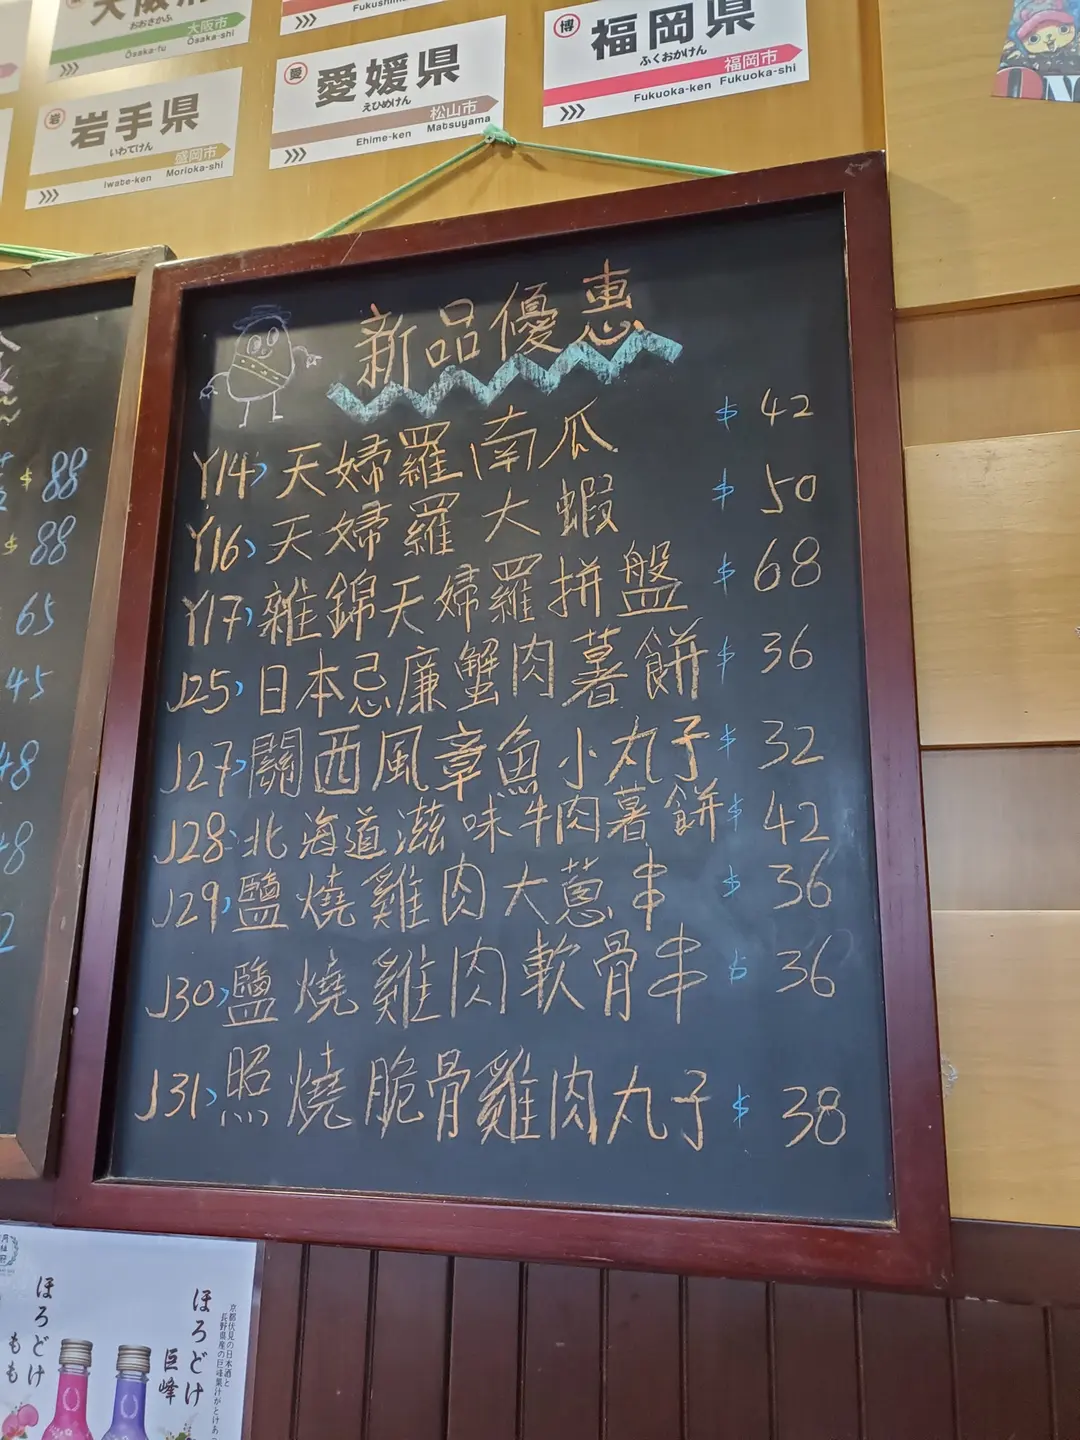 おおさかふ
大阪市
Ōsaka-fu Ōsaka-shi
岩
岩手県
いわてけん
盛岡市
Iwate-ken Morioka-shi
愛
愛媛県
えひめけん
松山市
Ehime-ken Matsuyama
博
福岡県
ふくおかけん
福岡市
Fukuoka-ken Fukuoka-shi
新品優惠
Y14 天婦羅南瓜 $42
Y16 天婦羅大蝦 $50
Y17 雜錦天婦羅拼盤 $68
J25 日本忌廉蟹肉薯餅 $36
J27 關西風章魚小丸子 $32
J28 北海道滋味牛肉薯餅 $42
J29 鹽燒雞肉大蔥串 $36
J30 鹽燒雞肉軟骨串 $36
J31 照燒脆骨雞肉丸子 $38
$88
$88
65
45
48
ほろどけ
もも
ほろどけ
巨峰
京都伏見の日本酒と